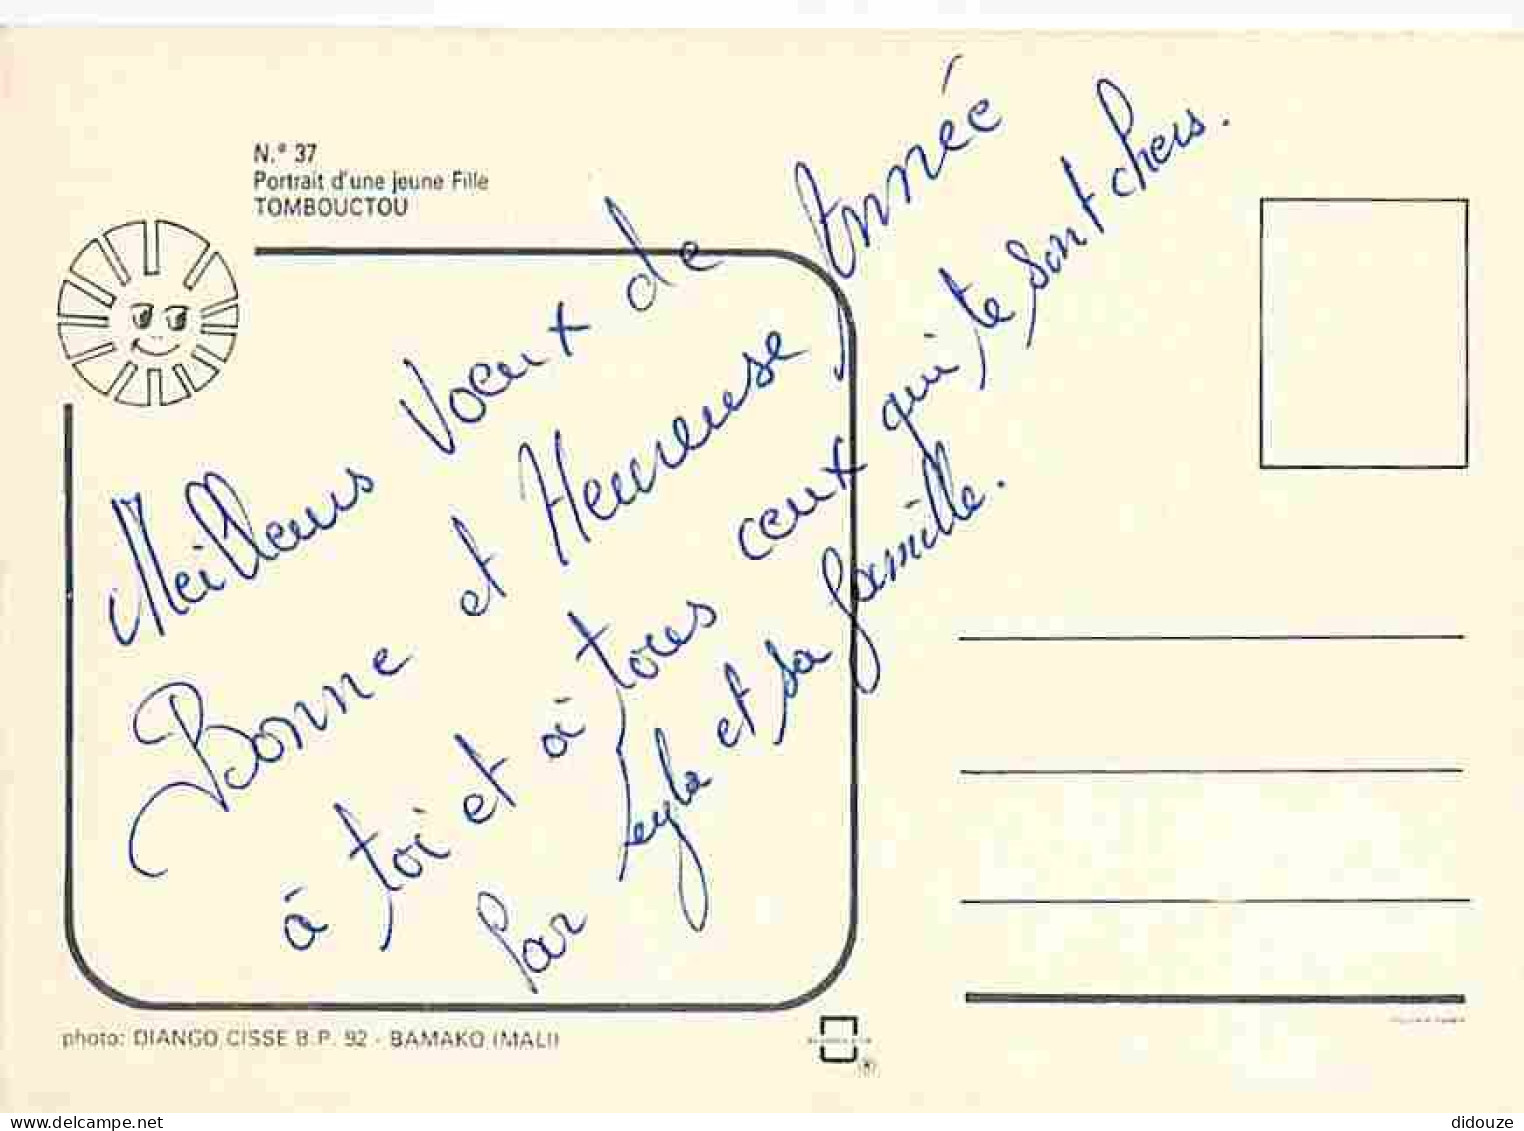 N.° 37
Portrait d'une jeune Fille
TOMBOUCTOU
Meilleurs Voeux de
Bonne et Heureuse Année
à toi et à tous ceux qui te sont chers.
Par Leyla et sa famille.
photo: DIANGO CISSE B.P. 92 - BAMAKO (MALI)
www.delcampe.net
didouze